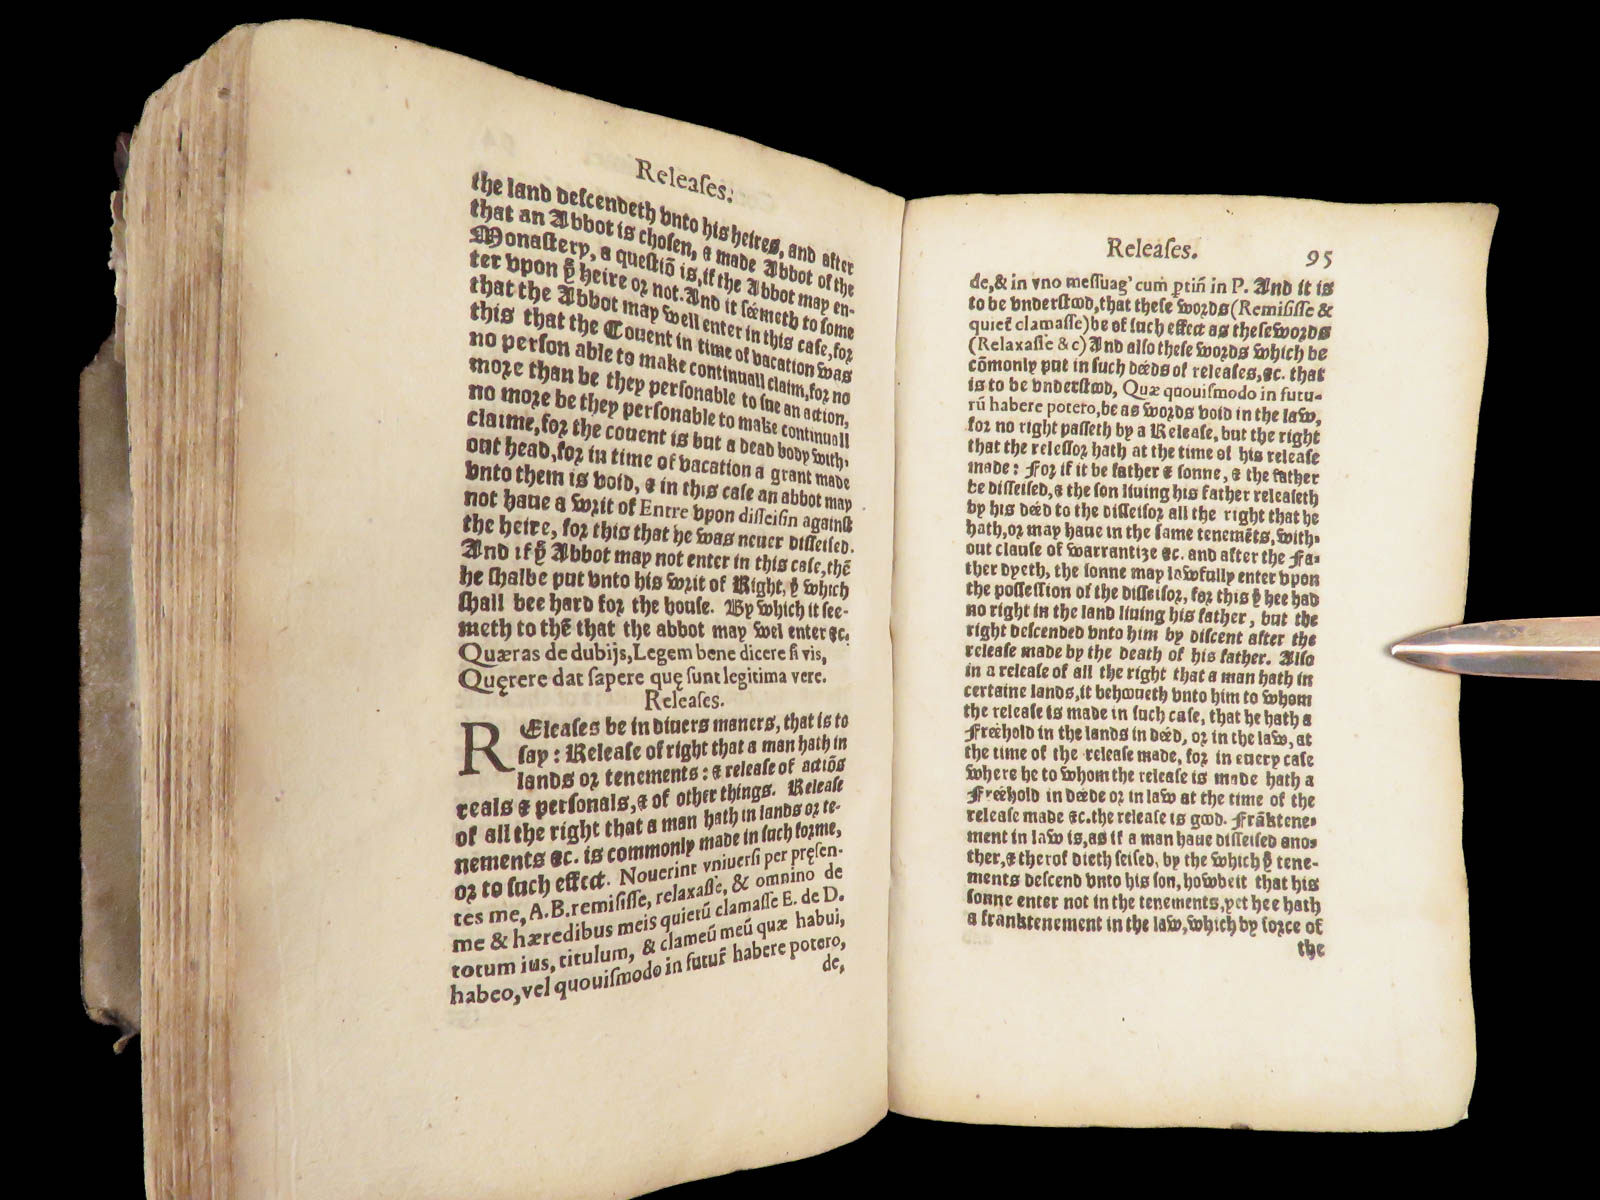 Releaſes.
the land deſcendeth vnto his heires, and after
that an Abbot is choſen, & made Abbot of the
Monaſtery, a queſtiō is, if the Abbot may en-
ter vpon yͤ heire or not. And it ſéemeth to ſome
that the Abbot may well enter in this caſe, for
this that the Couent in time of vacation was
no perſon able to make continuall claim, for no
more than be they perſonable to ſue an action,
no more be they perſonable to make continuall
claime, for the couent is but a dead body with-
out head, for in time of vacation a grant made
vnto them is void, & in this caſe an abbot may
not haue a writ of Entre vpon diſſeiſin againſt
the heire, for this that he was neuer diſſeiſed.
And if yͤ Abbot may not enter in this caſe, thē
he ſhalbe put vnto his writ of Right, yͤ which
ſhall bee hard for the houſe. By which it ſee-
meth to thē that the abbot may wel enter &c.
Quæras de dubijs, Legem bene dicere ſi vis,
Quęrere dat ſapere quę ſunt legitima vere.
Releaſes.
RElealſes be in diuers maners, that is to
ſay: Releaſe of right that a man hath in
lands or tenements: & releaſe of actiōs
reals & perſonals, & of other things. Releaſe
of all the right that a man hath in lands or te-
nements &c. is commonly made in ſuch forme,
or to ſuch effect. Nouerint vniuerſi per pręſen-
tes me, A.B. remiſiſſe, relaxaſſe, & omnino de
me & hæredibus meis quietū clamaſſe E. de D.
totum ius, titulum, & clameū meū quæ habui,
habeo, vel quouiſmodo in futur̄ habere potero,
de,
Releaſes. 95
de, & in vno meſſuag' cum̄ ꝑtiñ in P. And it is
to be vnderſtood, that theſe words (Remiſiſſe &
quiet̄ clamaſſe) be of ſuch effect as theſe words
(Relaxaſſe &c) And alſo theſe words which be
cōmonly put in ſuch déeds of releaſes, &c. that
is to be vnderſtood, Quæ quouiſmodo in futu-
rū habere potero, be as words void in the law,
for no right paſſeth by a Releaſe, but the right
that the releſſor hath at the time of his releaſe
made: For if it be father & ſonne, & the father
be diſſeiſed, & the ſon liuing his father releaſeth
by his déed to the diſſeiſor all the right that he
hath, or may haue in the ſame tenemēts, with-
out clauſe of warrantize &c. and after the Fa-
ther dyeth, the ſonne may lawfully enter vpon
the poſſeſſion of the diſſeiſor, for this yͭ hee had
no right in the land liuing his father, but the
right deſcended vnto him by diſcent after the
releaſe made by the death of his father. Alſo
in a releaſe of all the right that a man hath in
certaine lands, it behooueth vnto him to whom
the releaſe is made in ſuch caſe, that he hath a
Fréehold in the lands in déed, or in the law, at
the time of the releaſe made, for in euery caſe
where he to whom the releaſe is made hath a
Fréehold in déede or in law at the time of the
releaſe made &c. the releaſe is good. Frāktene-
ment in law is, as if a man haue diſſeiſed ano-
ther, & therof dieth ſeiſed, by the which yͤ tene-
ments deſcend vnto his ſon, howbeit that his
ſonne enter not in the tenements, yet hee hath
a franktenement in the law, which by force of
the